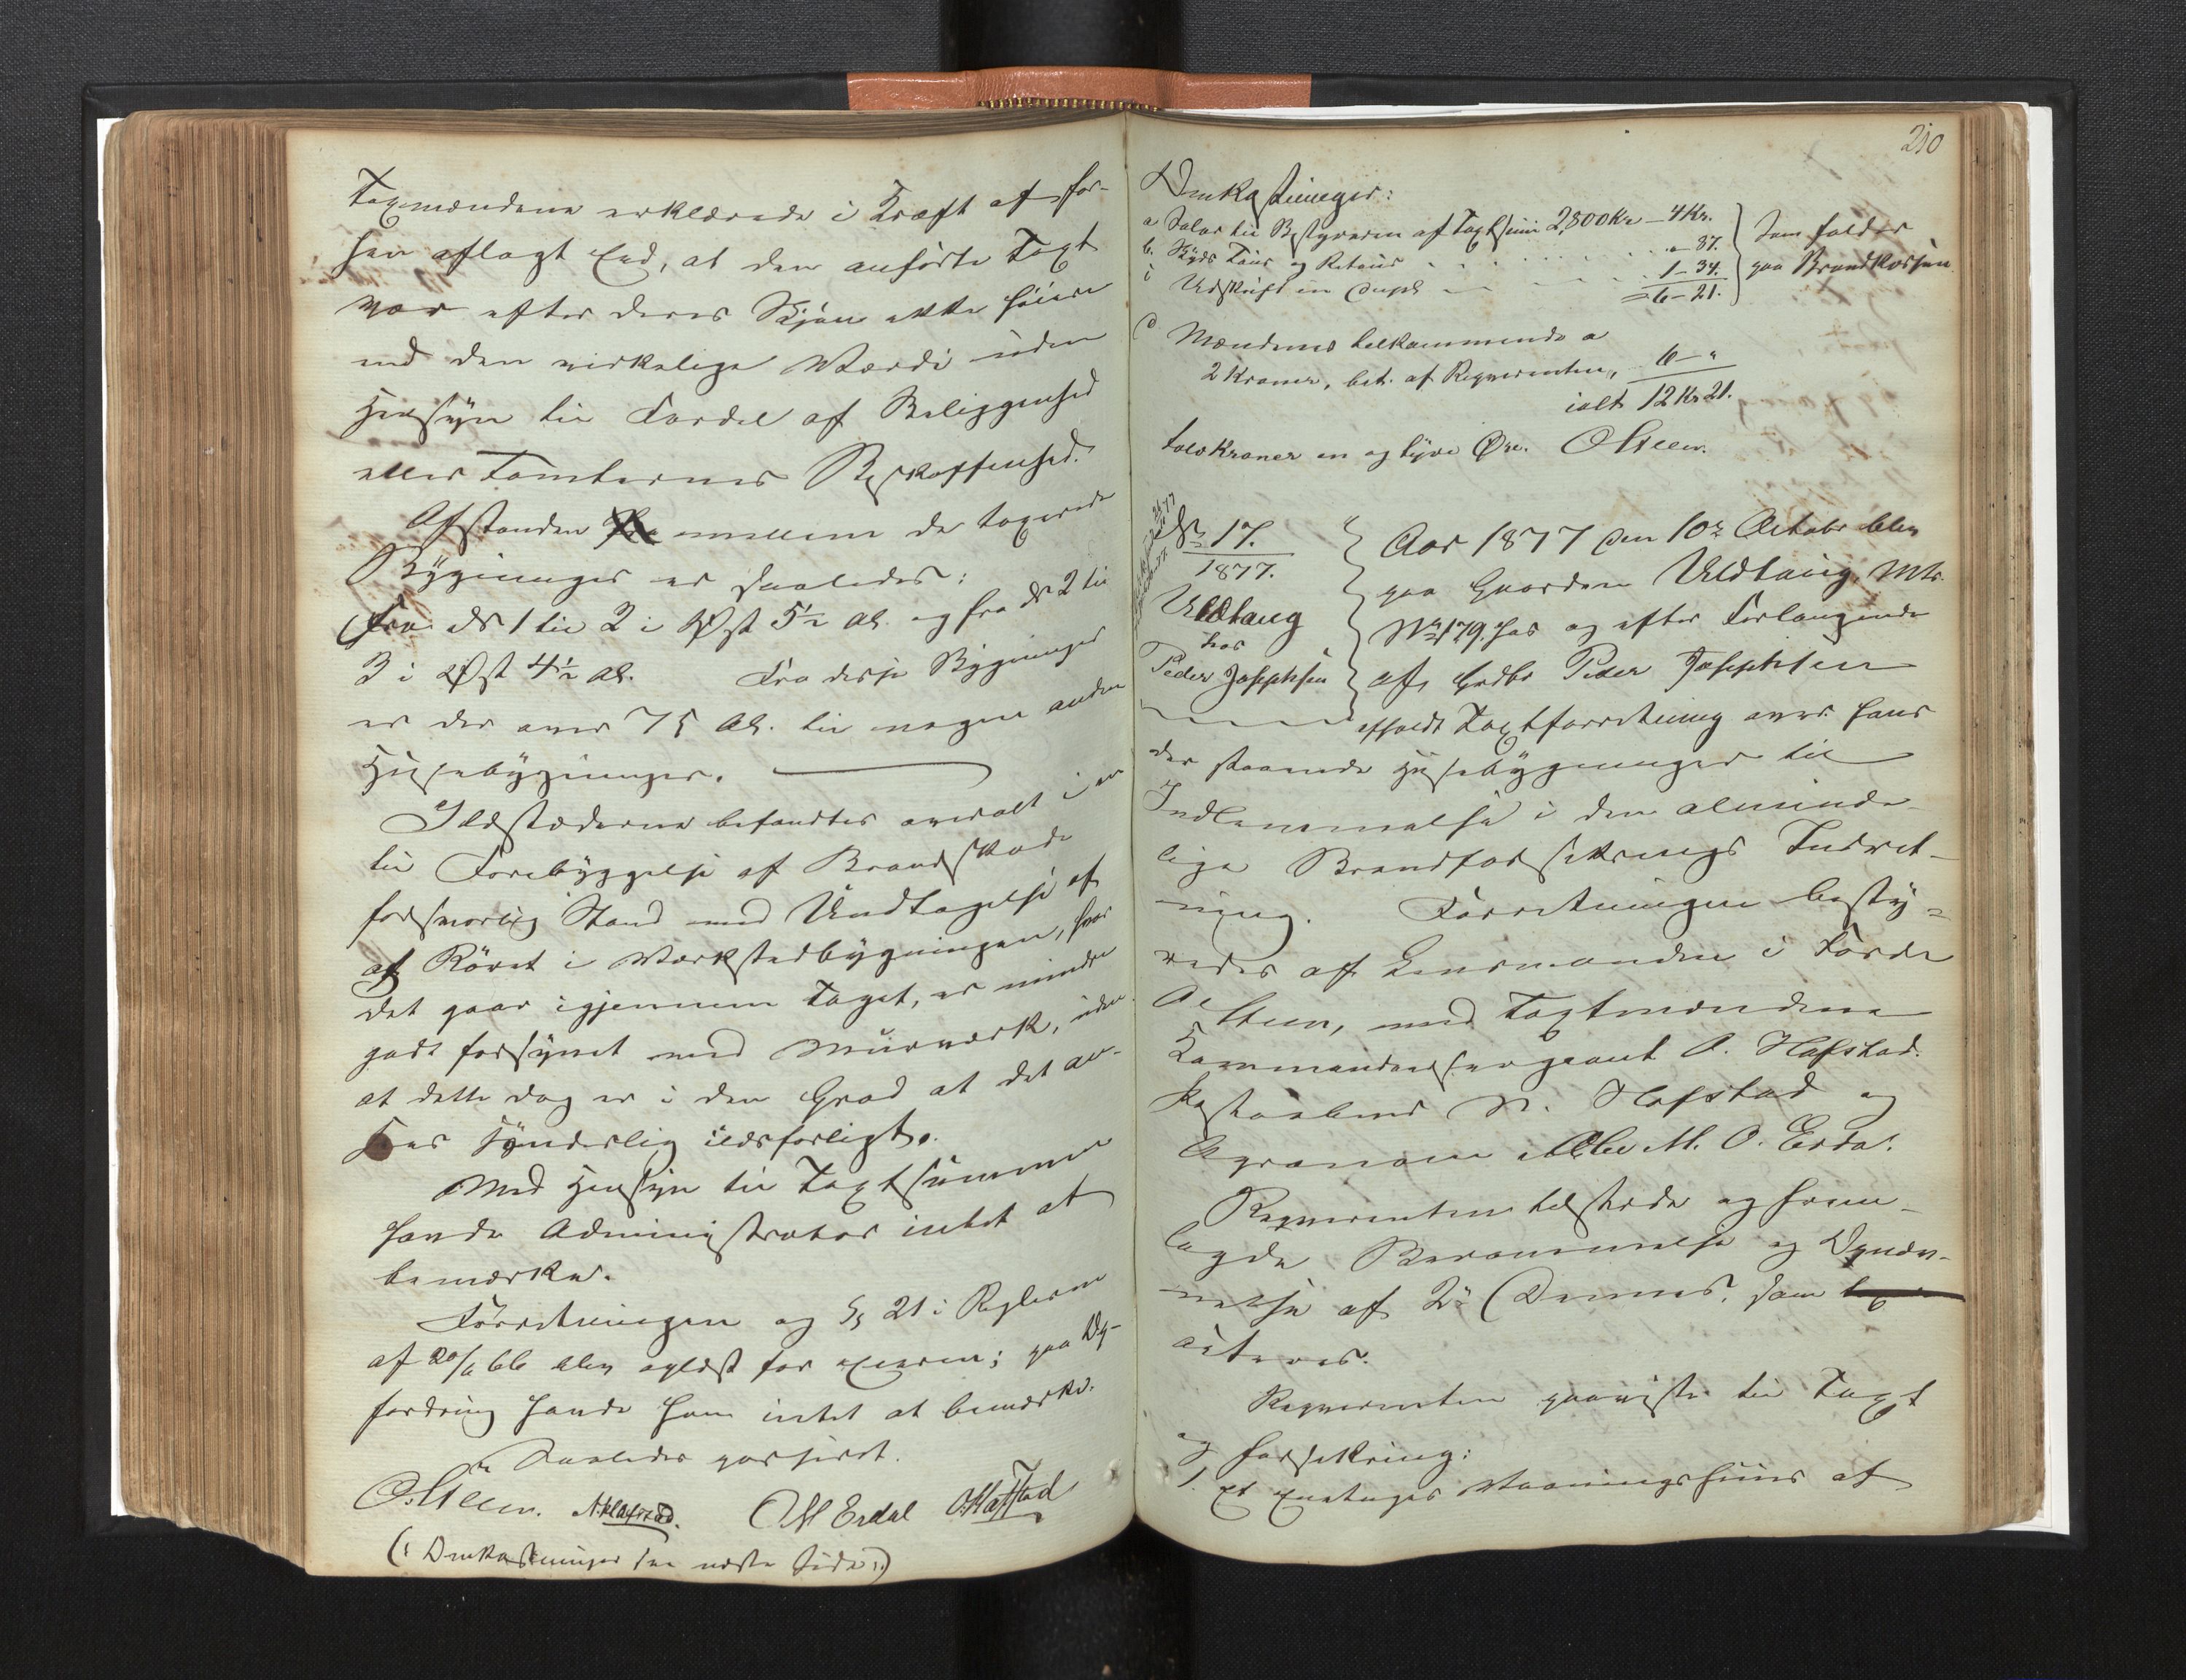 Taxmændene erklærede i Kraft af for-
hen aflagt Eed, at den anførte Taxt
var efter deres Skjøn ikke høiere
end den virkelige Værdi uden
Hensyn til Fordel af Beliggenhed
eller Tomternes Beskaffenhed.
Afstanden mellem de taxerede
Bygninger er saaledes:
Fra No 1 til 2 i Øst 5½ Al. og fra No 2 til
3 i Øst 4½ Al. Fra disse Bygninger
er der over 75 Al. til nogen anden
Husebygninger.
Ildstæderne befandtes overalt i en
til Forebyggelse af Brandskade
forsvarlig Stand med Undtagelse af
at Röret i Værkstedbygningen, hvor
det gaar igjennem Taget, er mindre
godt forsynet med Muurværk, uden
at dette dog er i den Grad at det an-
sees synderlig ildsfarligt.
Med Hensyn til Taxtsummen
havde Administrator intet at
bemærke.
Forretningen og § 21 i Reglerne
af 20/6 66 blev oplæst for Eieren; paa Op-
fordring havde han intet at bemærke.
Saaledes passeret.
O. Steen. N. Hafstad. O M Erdal O. Hafstad
(: Omkostninger see næste Side :)
210
Omkostninger:
a Salær til Bestyreren af Taxtsum 2,800 Kr – 4 Kr.
b. Skyds Tour og Retour - - - . . . . " – 87.
c Udskrift in dupl - - - - - 1 – 34.
= 6 – 21.
som falder
paa Brandkassen.
d Mændenes tilkommende a
2 Kroner, bet. af Reqvirenten, 6 – "
ialt 12 Kr 21.
tolv Kroner en og tyve Øre. O Steen.
No 17.
1877.
Uldtang
hos
Peder Josephsen
Aar 1877 den 10de Octobr blev
paa Gaarden Uldtang, Mtr.
No 179. hos og efter Forlangende
af Grdbr Peder Josephsen
afholdt Taxtforretning over hans
der staaende Husebygninger til
Indlemmelse i den alminde-
lige Brandforsikrings Indret-
ning. Forretningen besty-
redes af Lensmanden i Førde
O Steen, med Taxtmændene
Kommandersergeant O. Hafstad.
Postaabner N. Hafstad og
Agronom Ole M. O. Erdal.
Reqvirenten tilstede og frem-
lagde Berammelse og Opnæv-
nelse af 2de Dennes, som
acteres.
Reqvirenten paaviste til Taxt
og Forsikring:
1. Et Eenetages Vaaningshuus af